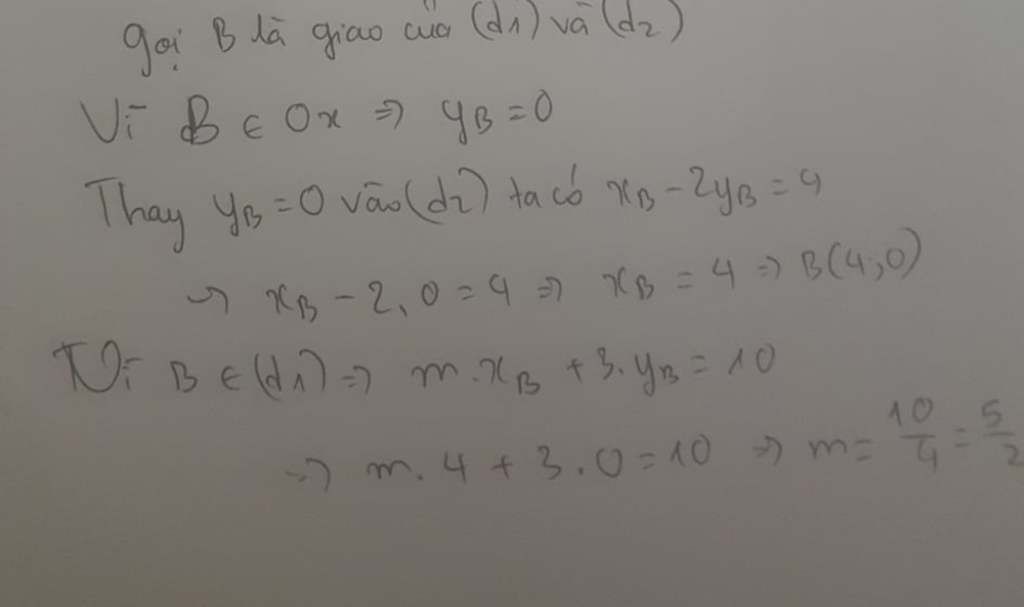 gọi B là giao của (d1) và (d2)
Vì B ∈ Ox ⇒ yB = 0
Thay yB = 0 vào (d2) ta có xB - 2yB = 4
⇒ xB - 2.0 = 4 ⇒ xB = 4 ⇒ B(4;0)
Vì B ∈ (d1) ⇒ m.xB + 3.yB = 10
⇒ m.4 + 3.0 = 10 ⇒ m = 10/4 = 5/2